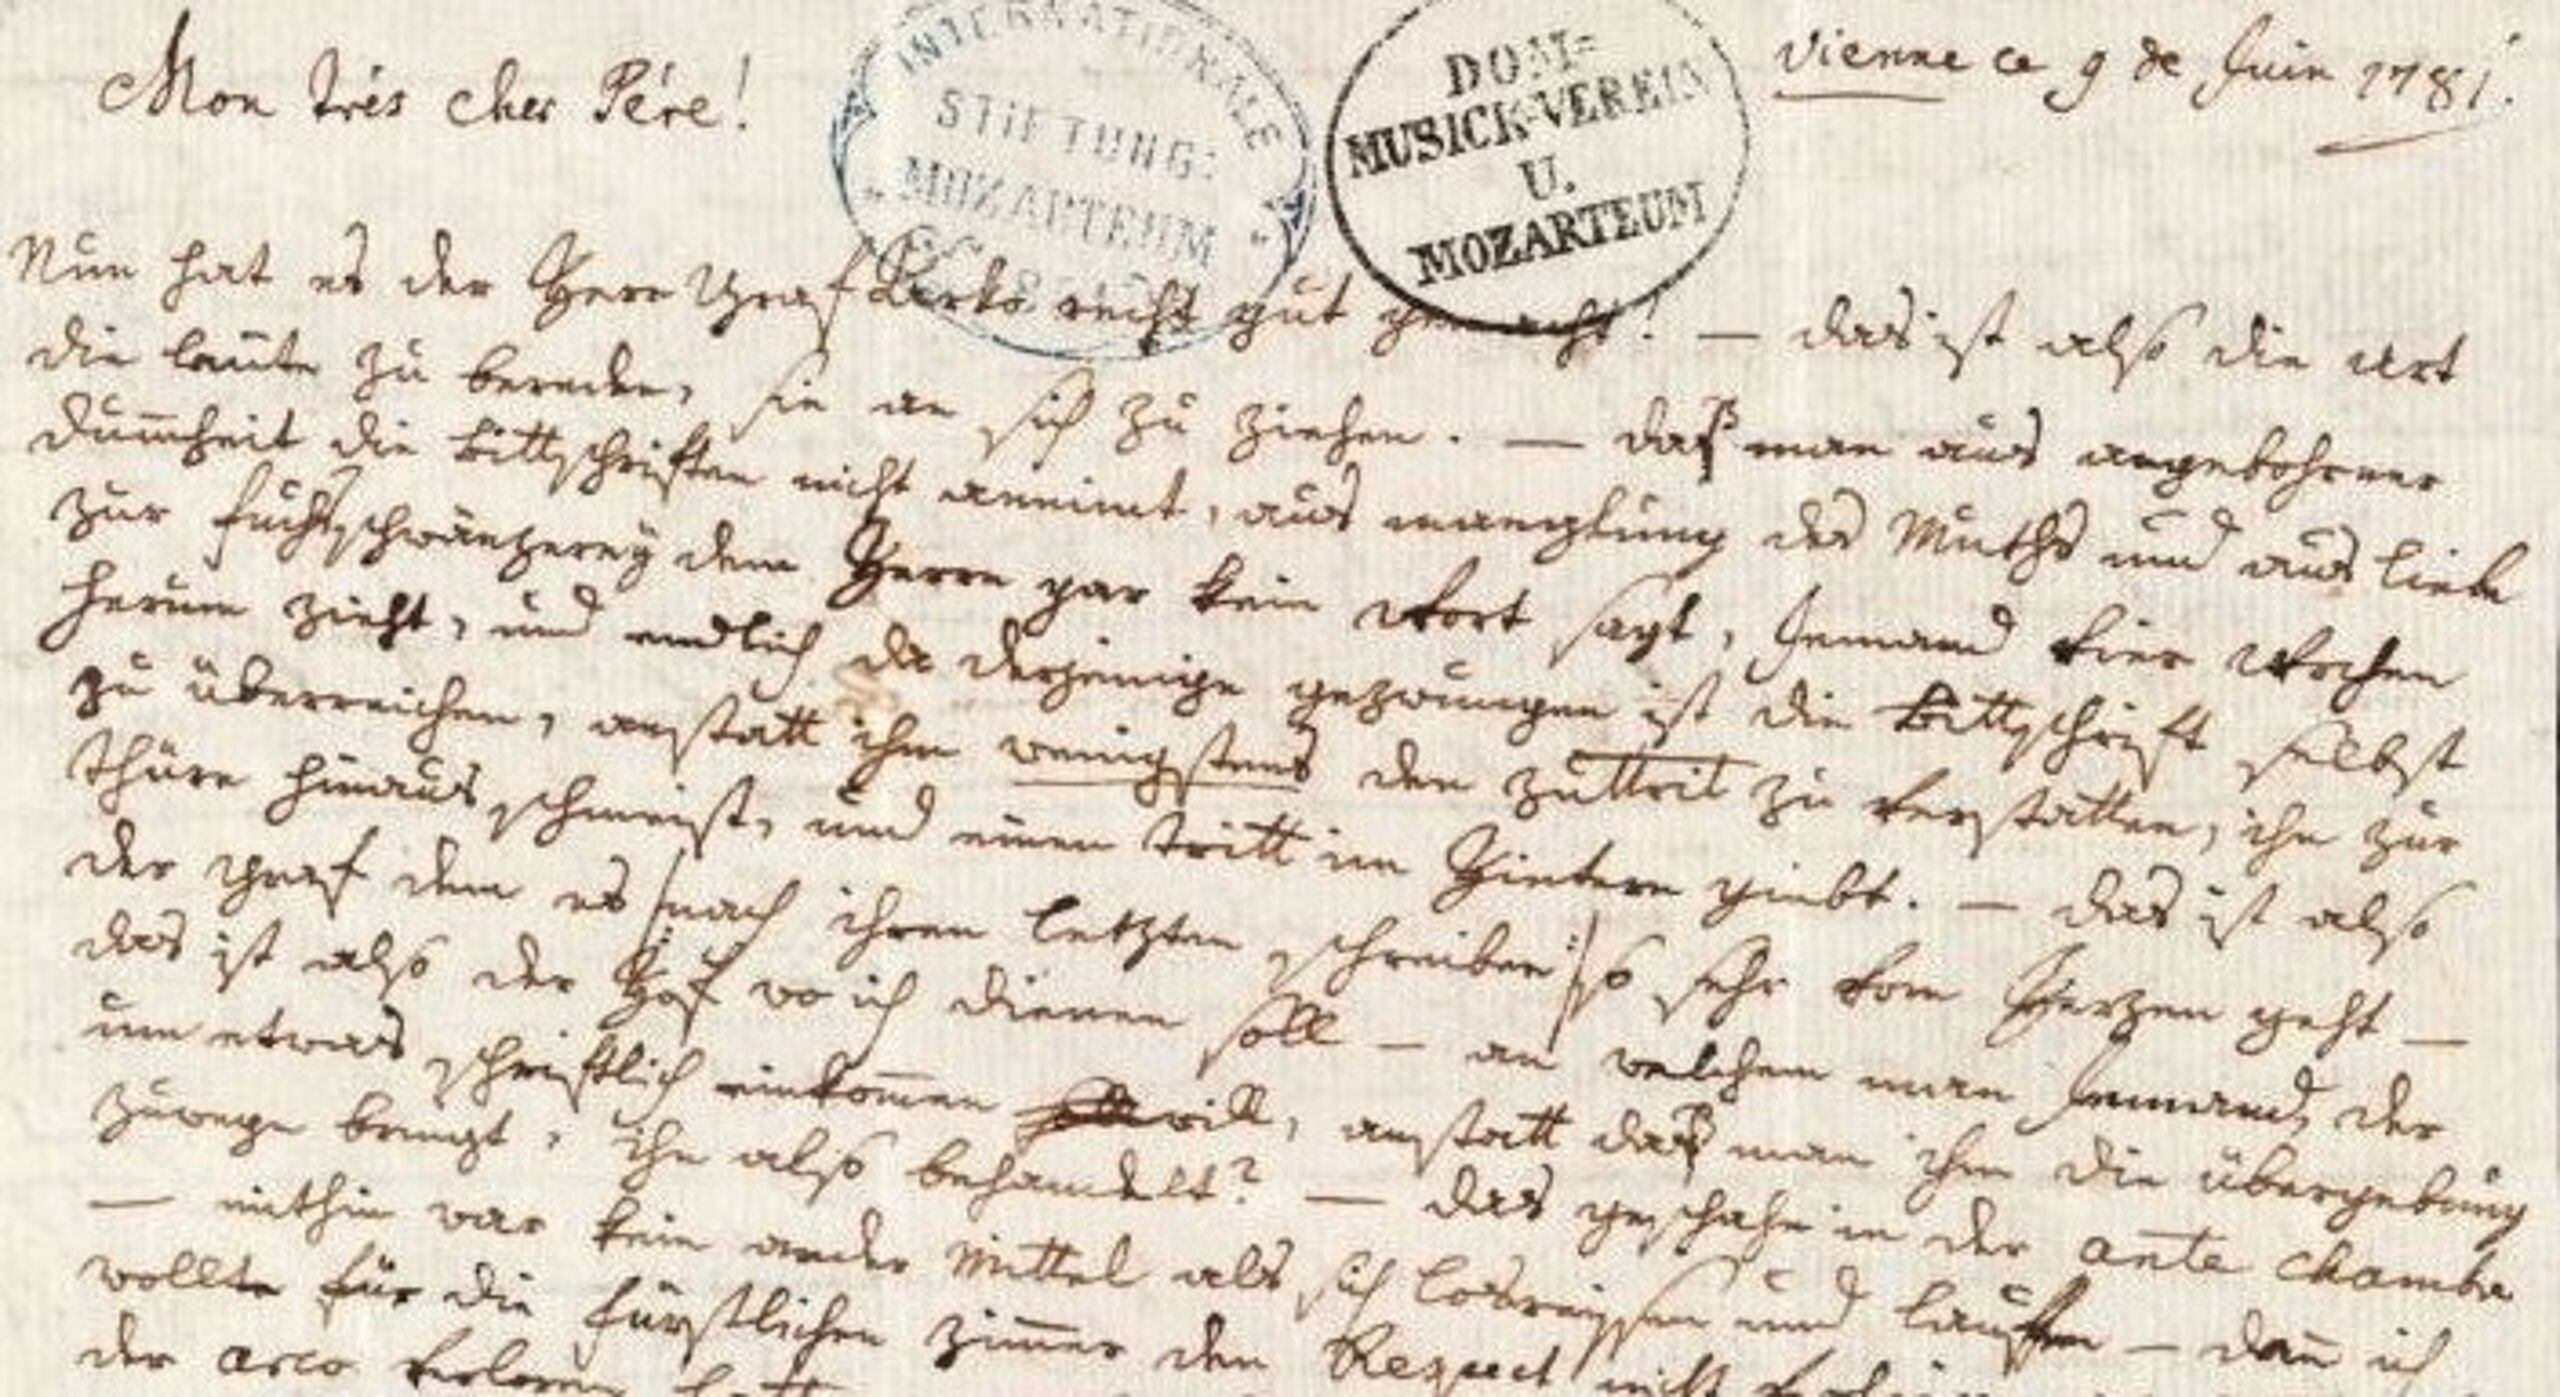 Mon trés cher Pére!
INTERNATIONALE
STIFTUNG:
MOZARTEUM
DOM=
MUSICK-VEREIN
U.
MOZARTEUM
Vienne ce 9 de Juin 1781.
Nun hat es der Herr Graf recht gut gemacht! — das ist also die Art
die leute zu bereden, sie an sich zu ziehen. — daß man aus angebohrner
dum̅heit die bittschriften nicht annim̅t, aus manglung des Muths und aus liebe
zur fuchsschwänzerey dem Herrn gar kein Wort sagt, Jemand vier Wochen
herum zieht, und endlich da derjenige gezwungen ist die bittschrift selbst
zu überreichen, anstatt ihm wenigstens den zuttrit zu verstatten, ihn zur
thüre hinaus schmeist, und einen tritt im Hintern giebt. — das ist also
der Graf dem es |: nach ihren letzten schreiben :| so sehr vom Herzen geht —
das ist also der Hof wo ich dienen soll — an welchem man Jemand, der
um etwas schriftlich einkom̅en will, anstatt daß man ihm die übergebung
zuwege bringt, ihn also behandelt? — das geschahe in der ante chambre
— mithin war kein ander Mittel als sich losreissen und lauffen — dan̅ ich
wollte für die fürstlichen zim̅er den Respect nicht
der arco